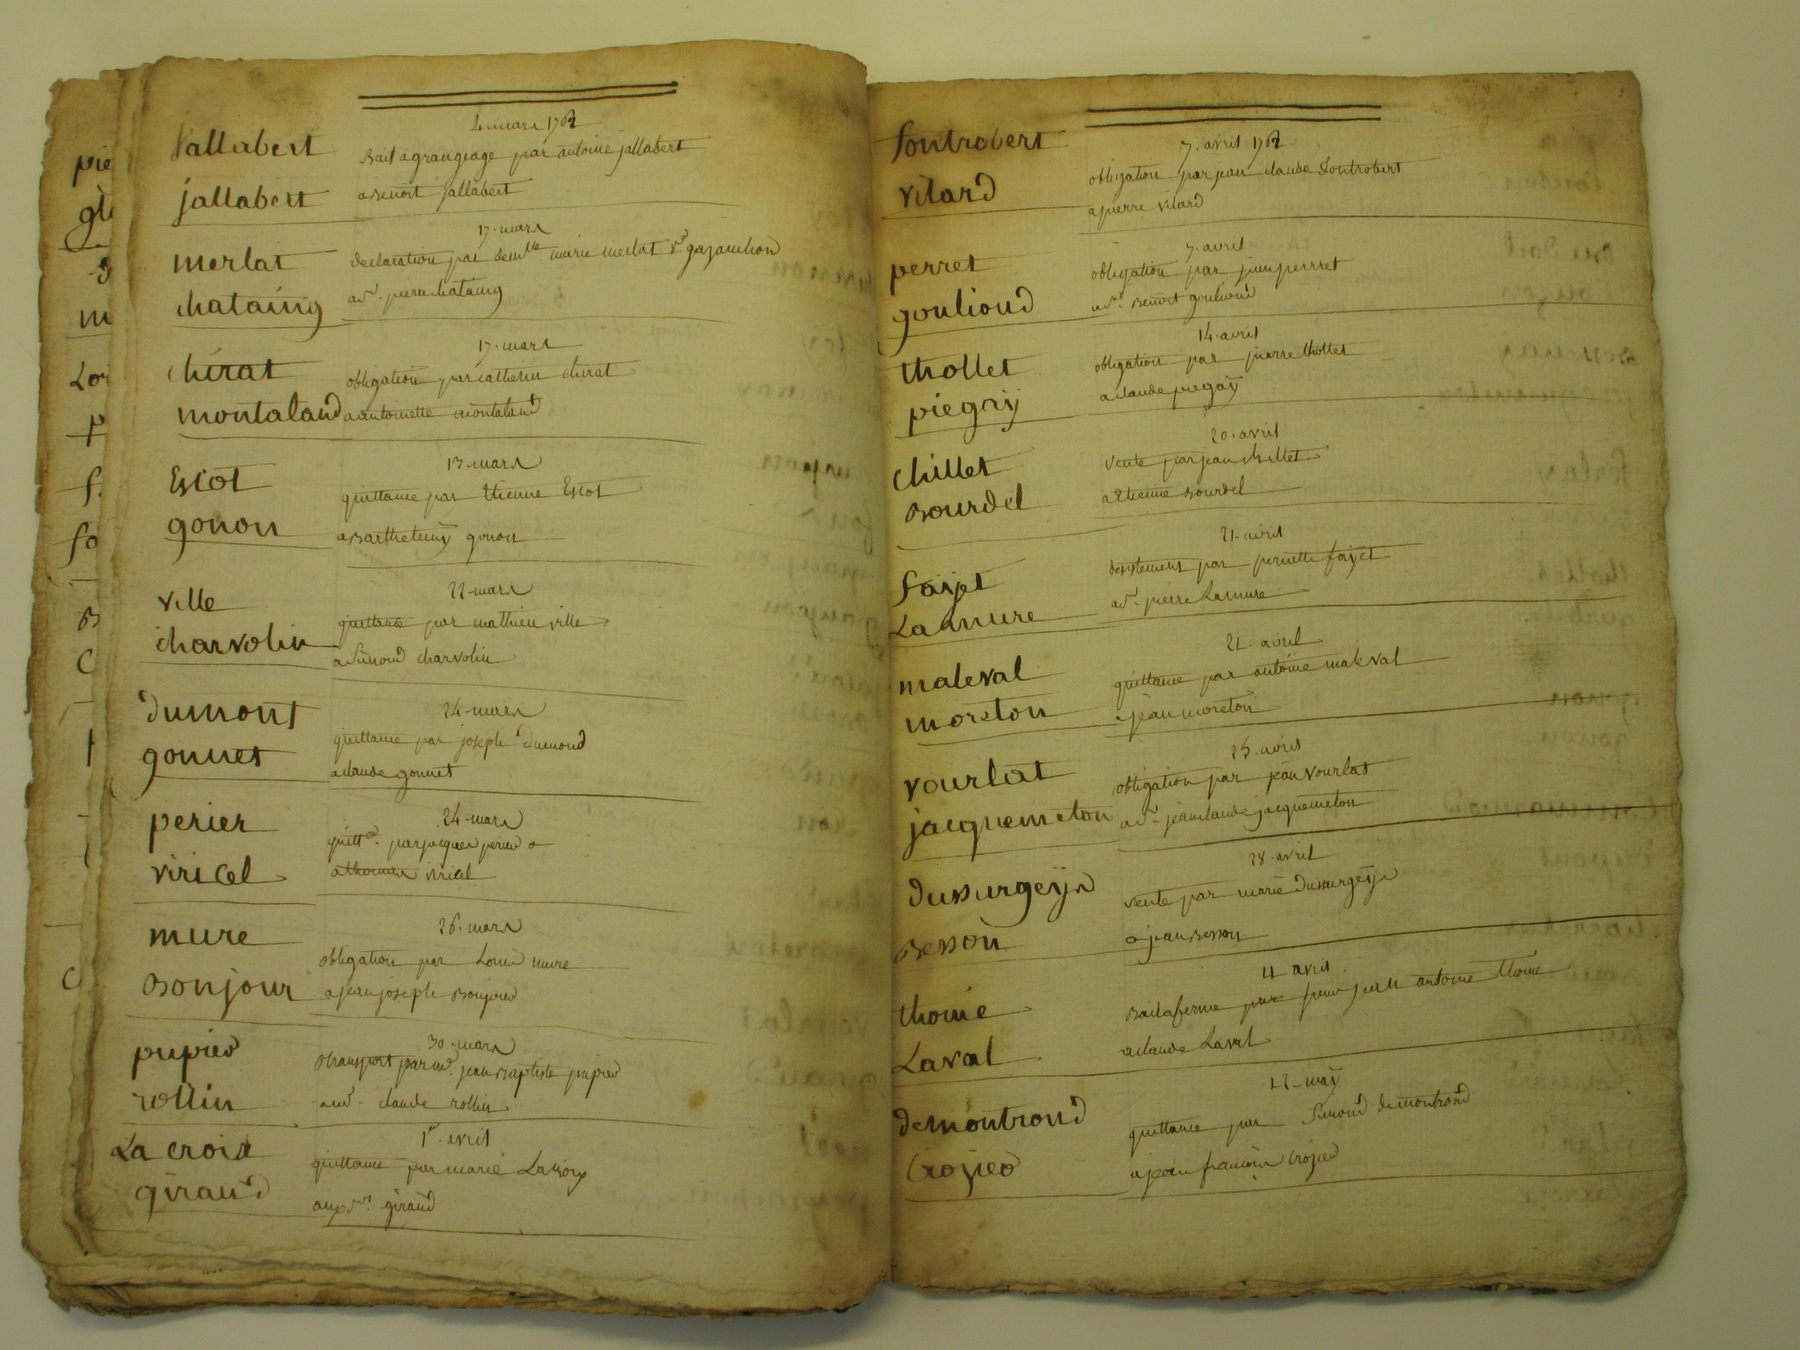 4. mars 1762
Jallabert Bail a grangeage par antoine jallabert
jallabert a Benoit jallabert
17. mars
merlat declaration par dem.lle marie merlat v.e gazanchon
chataing a s.r pierre chataing
17. mars
chirat obligation par catherin chirat
montaland a antoinette montaland
13. mars
Escot quittance par Etienne Escot
gonon a Barthelemy gonon
22. mars
ville quittance par mathieu ville
charvolin a Simond charvolin
24. mars
dumont quittance par joseph dumond
gonnet a claude gonnet
24. mars
perier quitt.ce par jacques perier
viricel a thomas viricel
26. mars
mure obligation par Louis mure
Bonjour a jean joseph Bonjour
30. mars
pupier transport par m.e jean Baptiste pupier
rollin au s.r claude rollin
1.er avril
La croix quittance par marie Lacroix
giraud aux s.rs giraud
7. avril 1762
fontrobert obligation par jean claude fontrobert
vilard a pierre vilard
7. avril
perret obligation par jean perret
goulioud a s.r Benoit goulioud
14. avril
thollet obligation par pierre thollet
piegay a claude piegay
20. avril
chillet vente par jean chillet
Bourdel a Etienne Bourdel
21. avril
fayet desistement par pernette fayet
La mure a s.r pierre Lamure
21. avril
maleval quittance par antoine maleval
moreton a jean moreton
25. avril
vourlat obligation par jean vourlat
jacquemeton a s.r jean claude jacquemeton
28. avril
dussurgeys vente par marie dussurgeys
Besson a jean Besson
4 avril
thoine Bail a ferme par jean antoine thoine
Laval a claude Laval
12. may
demontrond quittance par Simond demontrond
Crozier a jean francois Crozier